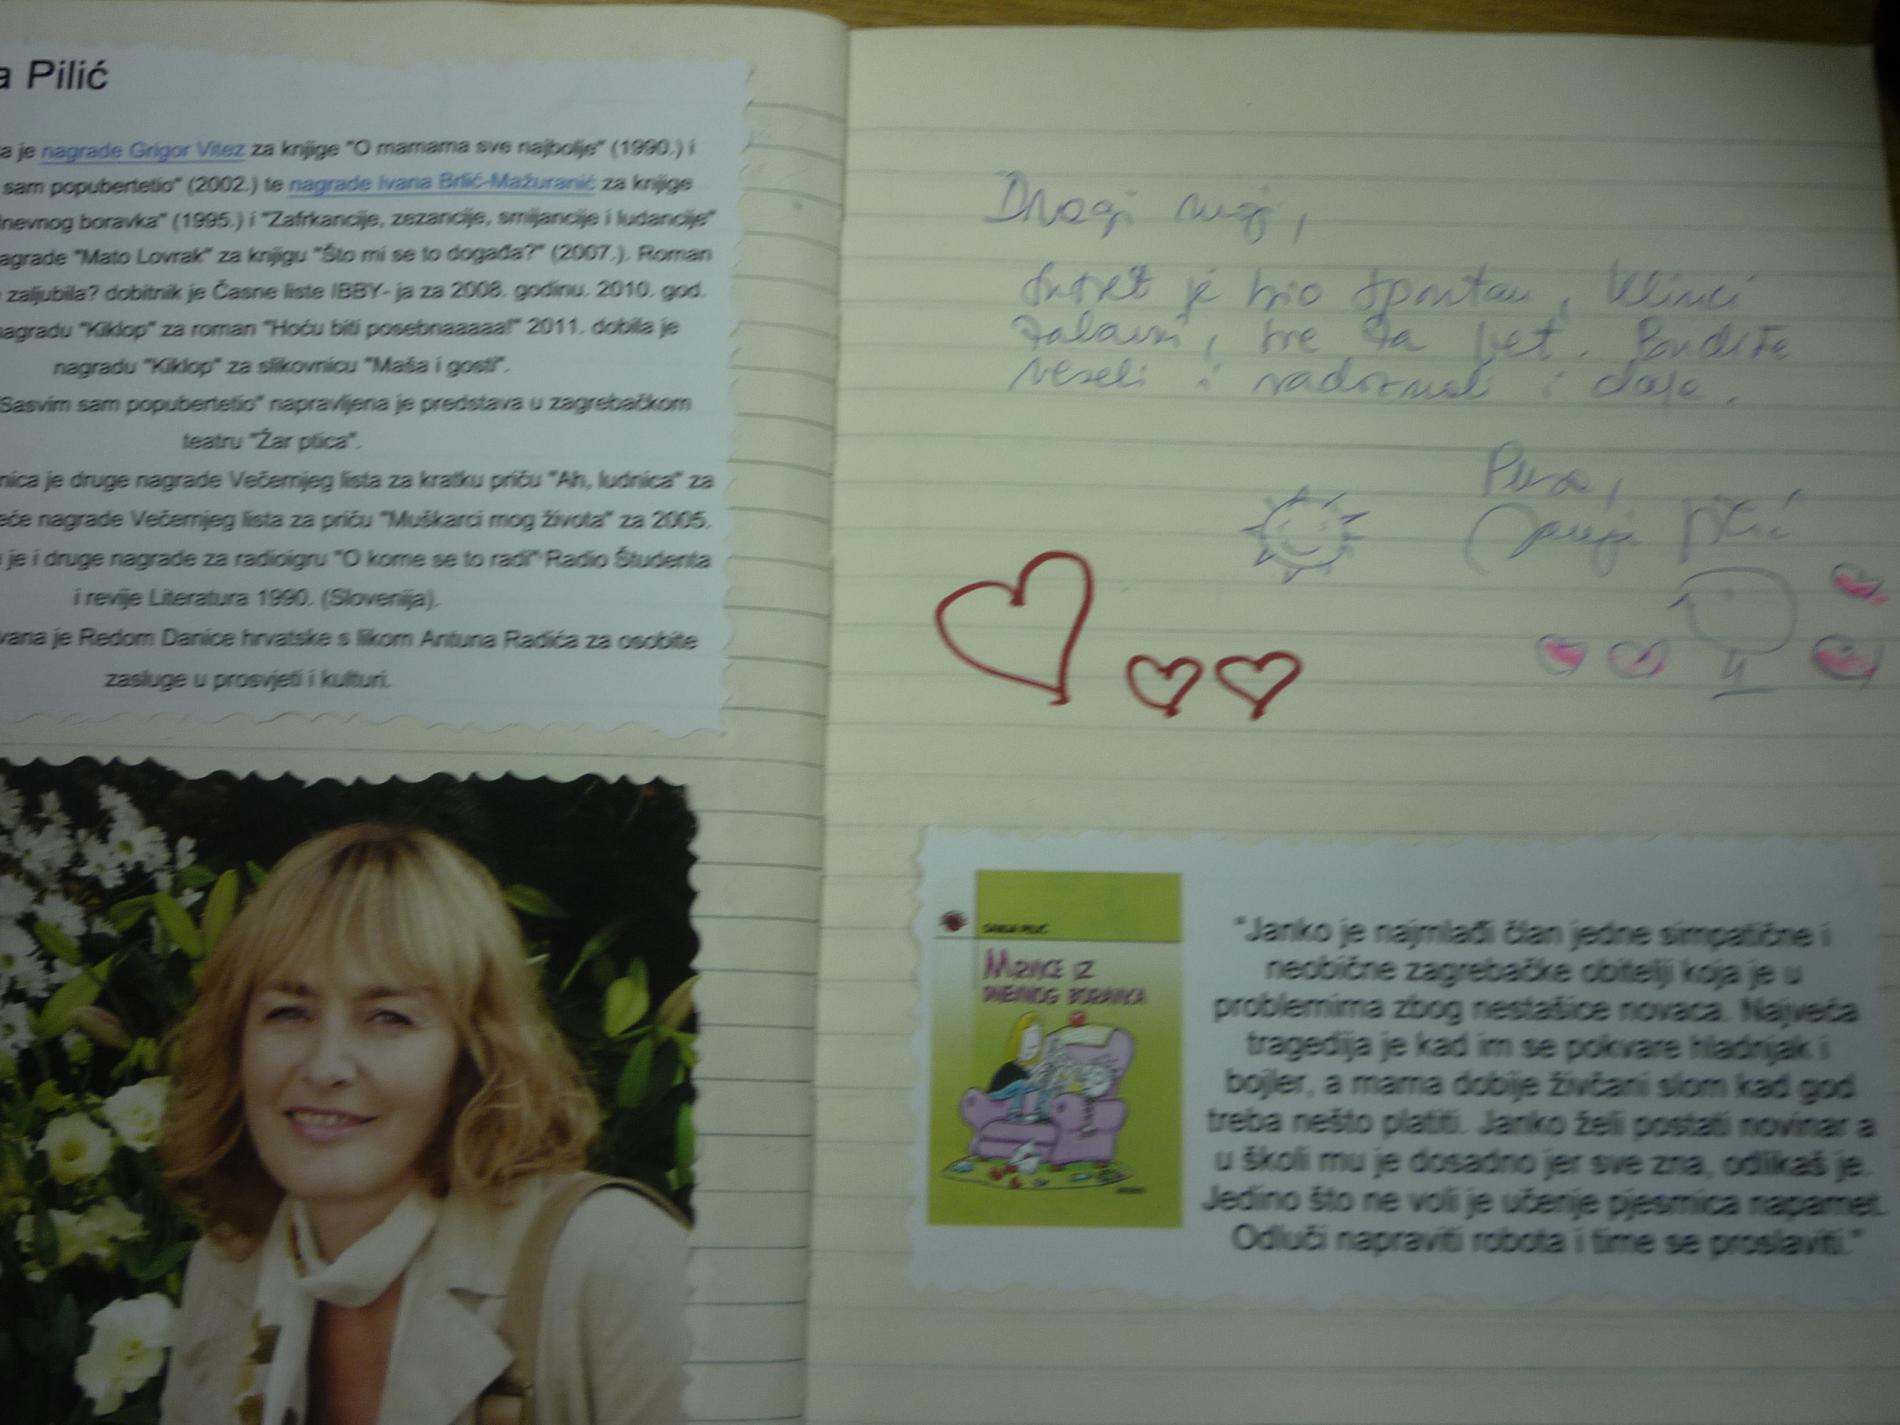 a Pilić
a je nagrade Grigor Vitez za knjige "O mamama sve najbolje" (1990.) i
sam popubertetio" (2002.) te nagrade Ivana Brlić-Mažuranić za knjige
dnevnog boravka" (1995.) i "Zafrkancije, zezancije, smijancije i ludancije"
agrade "Mato Lovrak" za knjigu "Što mi se to događa?" (2007.). Roman
zaljubila? dobitnik je Časne liste IBBY- ja za 2008. godinu. 2010. god.
nagradu "Kiklop" za roman "Hoću biti posebnaaaaa!" 2011. dobila je
nagradu "Kiklop" za slikovnicu "Maša i gosti".
Sasvim sam popubertetio" napravljena je predstava u zagrebačkom
teatru "Žar ptica".
nica je druge nagrade Večernjeg lista za kratku priču "Ah, ludnica" za
eće nagrade Večernjeg lista za priču "Muškarci mog života" za 2005.
je i druge nagrade za radioigru "O kome se to radi" Radio Študenta
i revije Literatura 1990. (Slovenija).
vana je Redom Danice hrvatske s likom Antuna Radića za osobite
zasluge u prosvjeti i kulturi.
Dragi moji,
Susret je bio spontan, klinci
zabavni, sve za pet. Budite
veseli i radoznali i dalje.
Pusa,
Sanja Pilić
SANJA PILIĆ
MRVICE IZ
DNEVNOG BORAVKA
"Janko je najmlađi član jedne simpatične i
neobične zagrebačke obitelji koja je u
problemima zbog nestašice novaca. Najveća
tragedija je kad im se pokvare hladnjak i
bojler, a mama dobije živčani slom kad god
treba nešto platiti. Janko želi postati novinar a
u školi mu je dosadno jer sve zna, odlikaš je.
Jedino što ne voli je učenje pjesmica napamet.
Odluči napraviti robota i time se proslaviti."